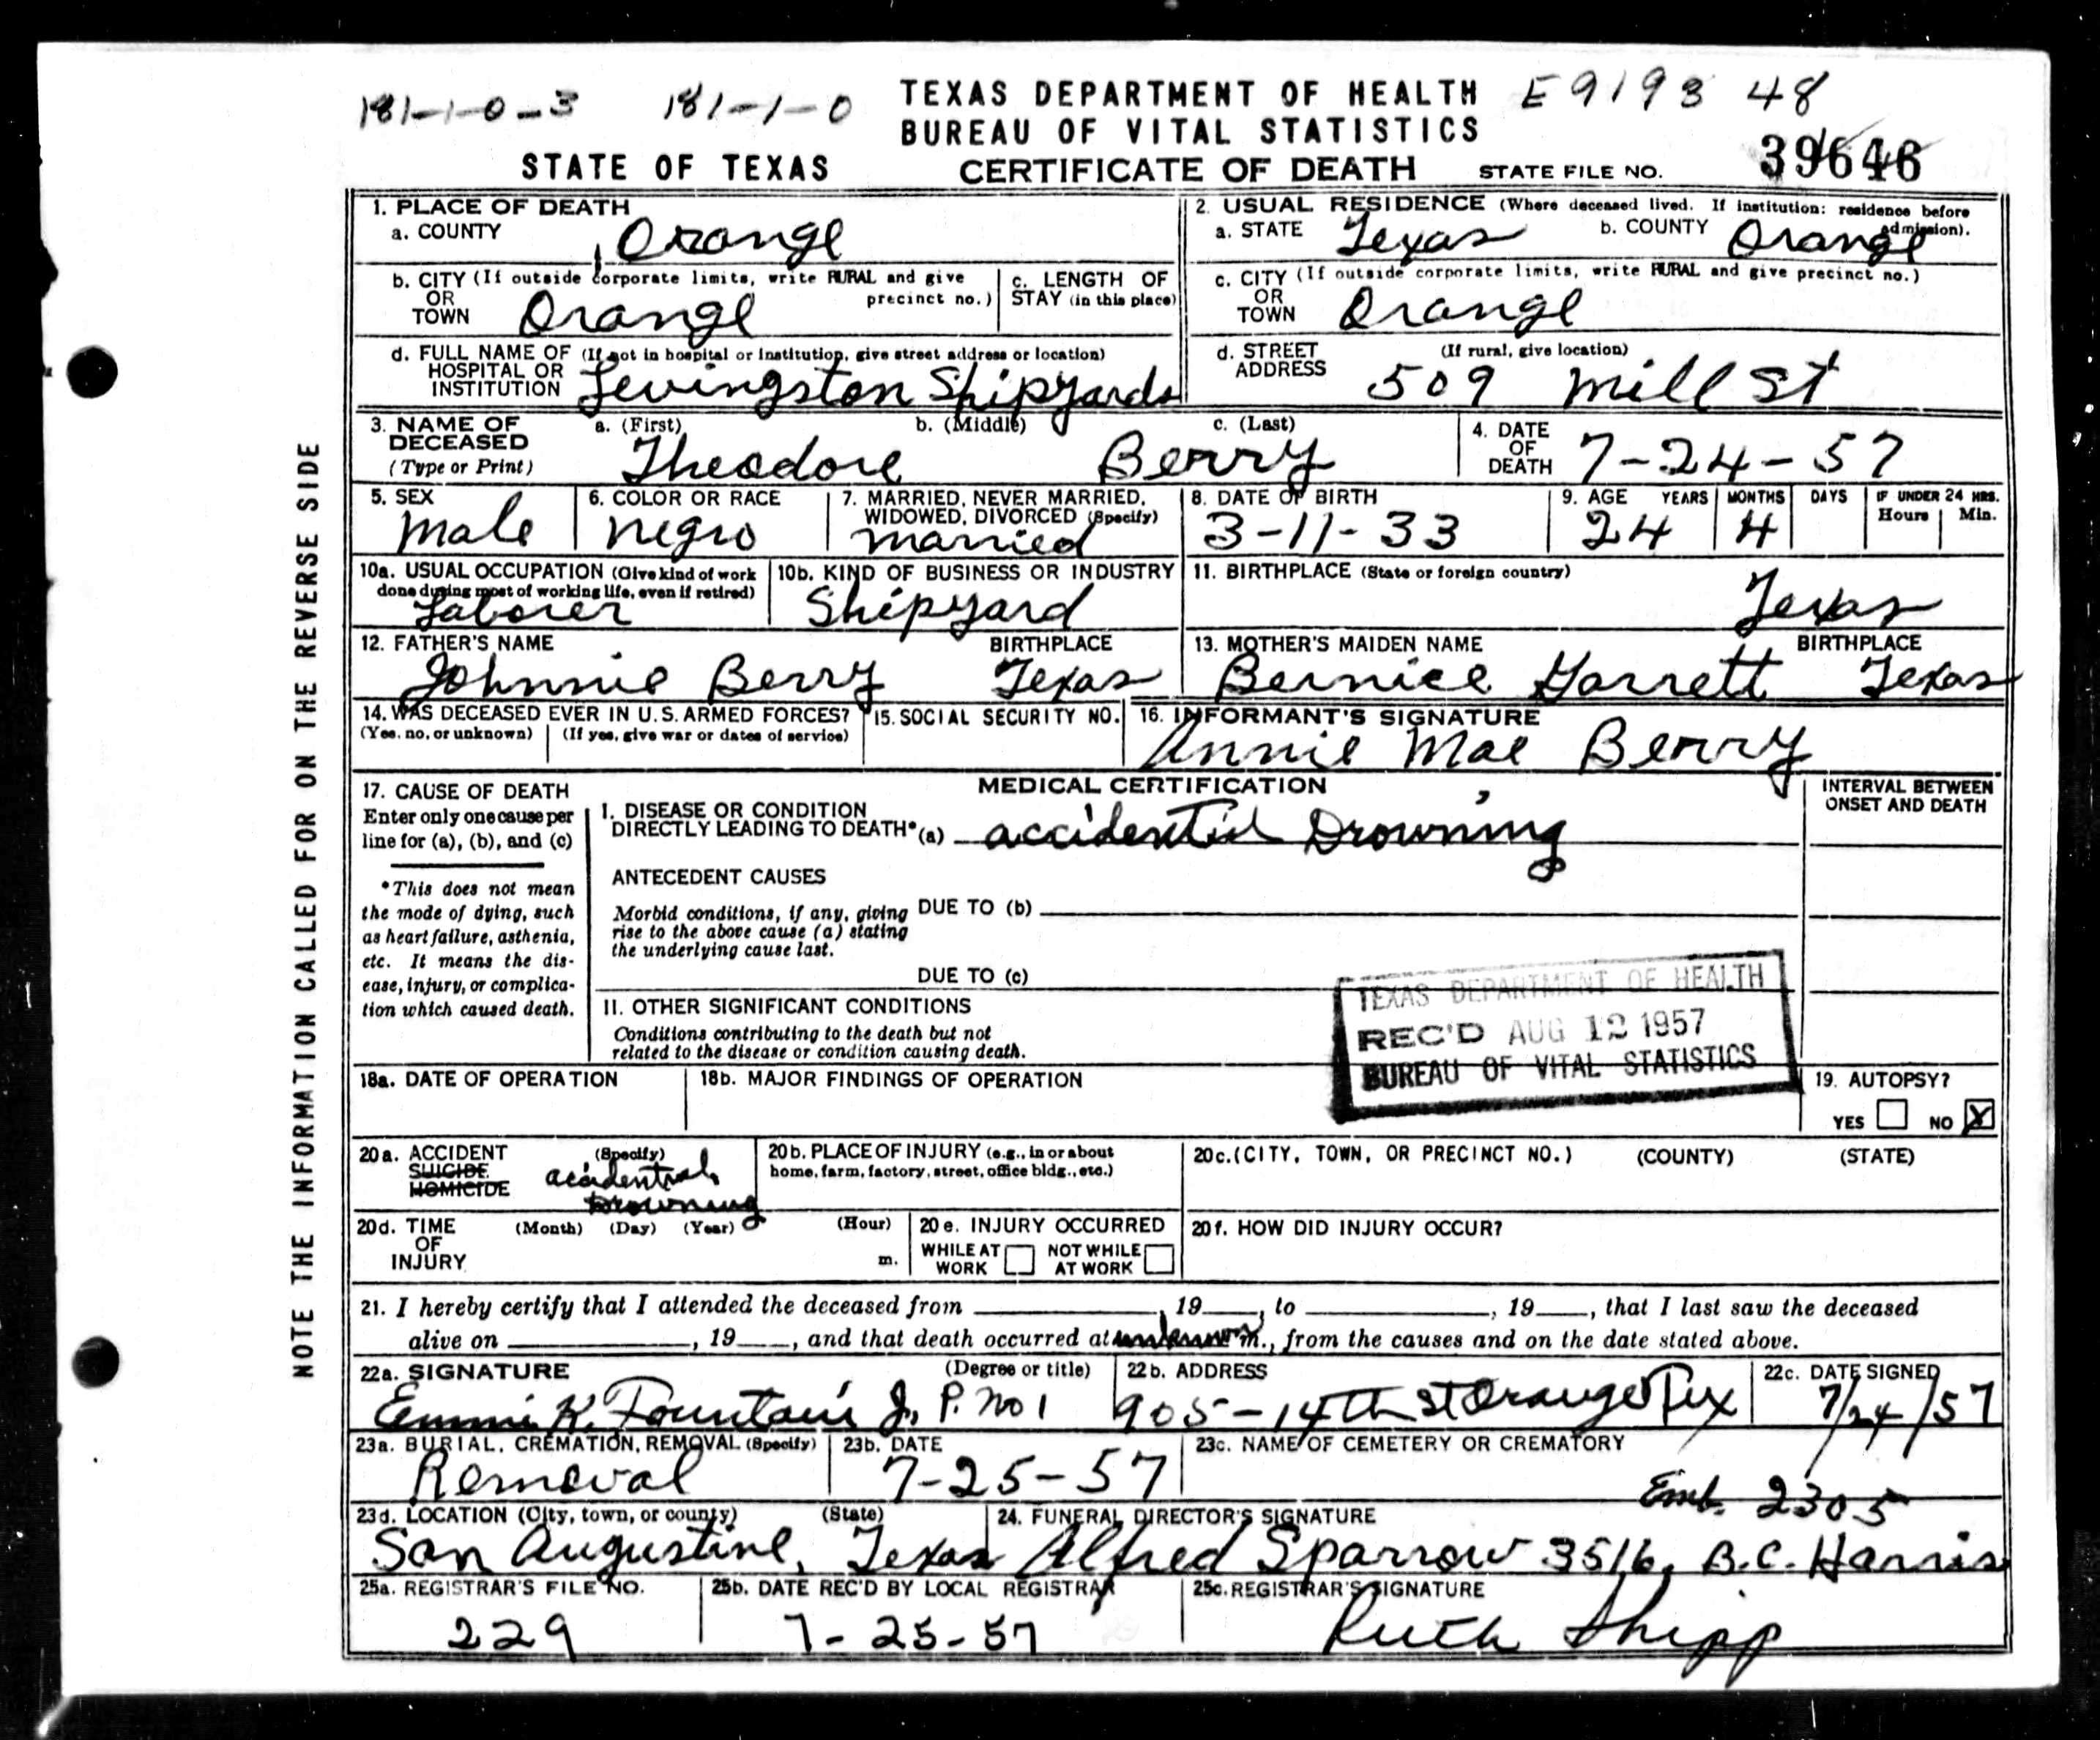 181-1-0-3 181-1-0 TEXAS DEPARTMENT OF HEALTH E9193 48
BUREAU OF VITAL STATISTICS
STATE OF TEXAS CERTIFICATE OF DEATH STATE FILE NO. 39646
1. PLACE OF DEATH
a. COUNTY Orange
2. USUAL RESIDENCE (Where deceased lived. If institution: residence before admission).
a. STATE Texas b. COUNTY Orange
b. CITY (If outside corporate limits, write RURAL and give precinct no.)
OR
TOWN Orange
c. LENGTH OF
STAY (in this place)
c. CITY (If outside corporate limits, write RURAL and give precinct no.)
OR
TOWN Orange
d. FULL NAME OF (If not in hospital or institution, give street address or location)
HOSPITAL OR
INSTITUTION Levingston Shipyards
d. STREET (If rural, give location)
ADDRESS 509 Mill St
3. NAME OF DECEASED (Type or Print)
a. (First) b. (Middle) c. (Last)
Theodore Berry
4. DATE OF DEATH 7-24-57
5. SEX
Male
6. COLOR OR RACE
Negro
7. MARRIED, NEVER MARRIED,
WIDOWED, DIVORCED (Specify)
Married
8. DATE OF BIRTH
3-11-33
9. AGE YEARS MONTHS DAYS IF UNDER 24 HRS.
Hours Min.
24 4
10a. USUAL OCCUPATION (Give kind of work
done during most of working life, even if retired)
Laborer
10b. KIND OF BUSINESS OR INDUSTRY
Shipyard
11. BIRTHPLACE (State or foreign country)
Texas
12. FATHER'S NAME BIRTHPLACE
Johnnie Berry Texas
13. MOTHER'S MAIDEN NAME BIRTHPLACE
Bernice Garrett Texas
14. WAS DECEASED EVER IN U.S. ARMED FORCES?
(Yes, no, or unknown) (If yes, give war or dates of service)
15. SOCIAL SECURITY NO.
16. INFORMANT'S SIGNATURE
Annie Mae Berry
MEDICAL CERTIFICATION
INTERVAL BETWEEN
ONSET AND DEATH
17. CAUSE OF DEATH
Enter only one cause per
line for (a), (b), and (c)
*This does not mean
the mode of dying, such
as heart failure, asthenia,
etc. It means the dis-
ease, injury, or complica-
tion which caused death.
I. DISEASE OR CONDITION
DIRECTLY LEADING TO DEATH* (a) accidential Drowning
ANTECEDENT CAUSES
Morbid conditions, if any, giving
rise to the above cause (a) stating
the underlying cause last.
DUE TO (b)
DUE TO (c)
II. OTHER SIGNIFICANT CONDITIONS
Conditions contributing to the death but not
related to the disease or condition causing death.
TEXAS DEPARTMENT OF HEALTH
REC'D AUG 12 1957
BUREAU OF VITAL STATISTICS
18a. DATE OF OPERATION
18b. MAJOR FINDINGS OF OPERATION
19. AUTOPSY?
YES NO X
20a. ACCIDENT (Specify)
SUICIDE
HOMICIDE
accidental
Drowning
20b. PLACE OF INJURY (e.g., in or about
home, farm, factory, street, office bldg., etc.)
20c. (CITY, TOWN, OR PRECINCT NO.) (COUNTY) (STATE)
20d. TIME (Month) (Day) (Year) (Hour)
OF
INJURY m.
20e. INJURY OCCURRED
WHILE AT WORK NOT WHILE AT WORK
20f. HOW DID INJURY OCCUR?
21. I hereby certify that I attended the deceased from , 19 , to , 19 , that I last saw the deceased
alive on , 19 , and that death occurred at unknown m., from the causes and on the date stated above.
22a. SIGNATURE (Degree or title)
K. Fountain J. P. No 1
22b. ADDRESS
905-14th St Orange Tex
22c. DATE SIGNED
7/24/57
23a. BURIAL, CREMATION, REMOVAL (Specify)
Removal
23b. DATE
7-25-57
23c. NAME OF CEMETERY OR CREMATORY
Emb. 2305
23d. LOCATION (City, town, or county) (State)
San Augustine, Texas
24. FUNERAL DIRECTOR'S SIGNATURE
Alfred Sparrow 3516, B.C. Harris
25a. REGISTRAR'S FILE NO.
229
25b. DATE REC'D BY LOCAL REGISTRAR
7-25-57
25c. REGISTRAR'S SIGNATURE
Ruth Shipp
NOTE THE INFORMATION CALLED FOR ON THE REVERSE SIDE